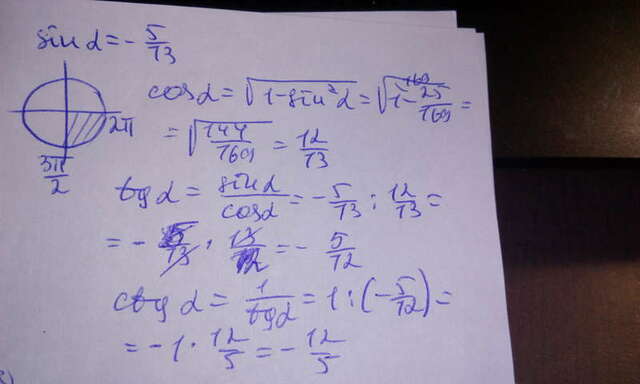 sin α = - 5/13
cos α = √(1 - sin² α) = √(1 - 25/169) =
= √(144/169) = 12/13
2π
3π/2
tg α = sin α / cos α = - 5/13 : 12/13 =
= - 5/13 · 13/12 = - 5/12
ctg α = 1/tg α = 1 : (- 5/12) =
= - 1 · 12/5 = - 12/5